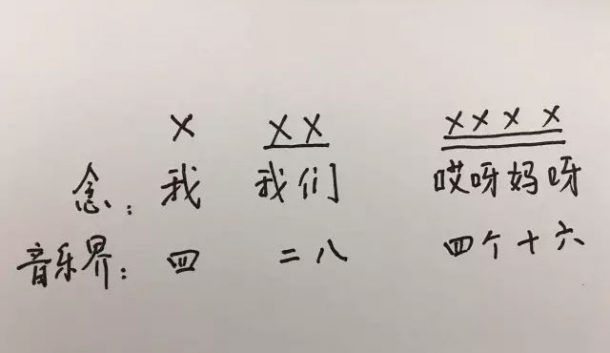 X XX XXXX
念：我 我们 哎呀妈呀
音乐界：四 二八 四个十六